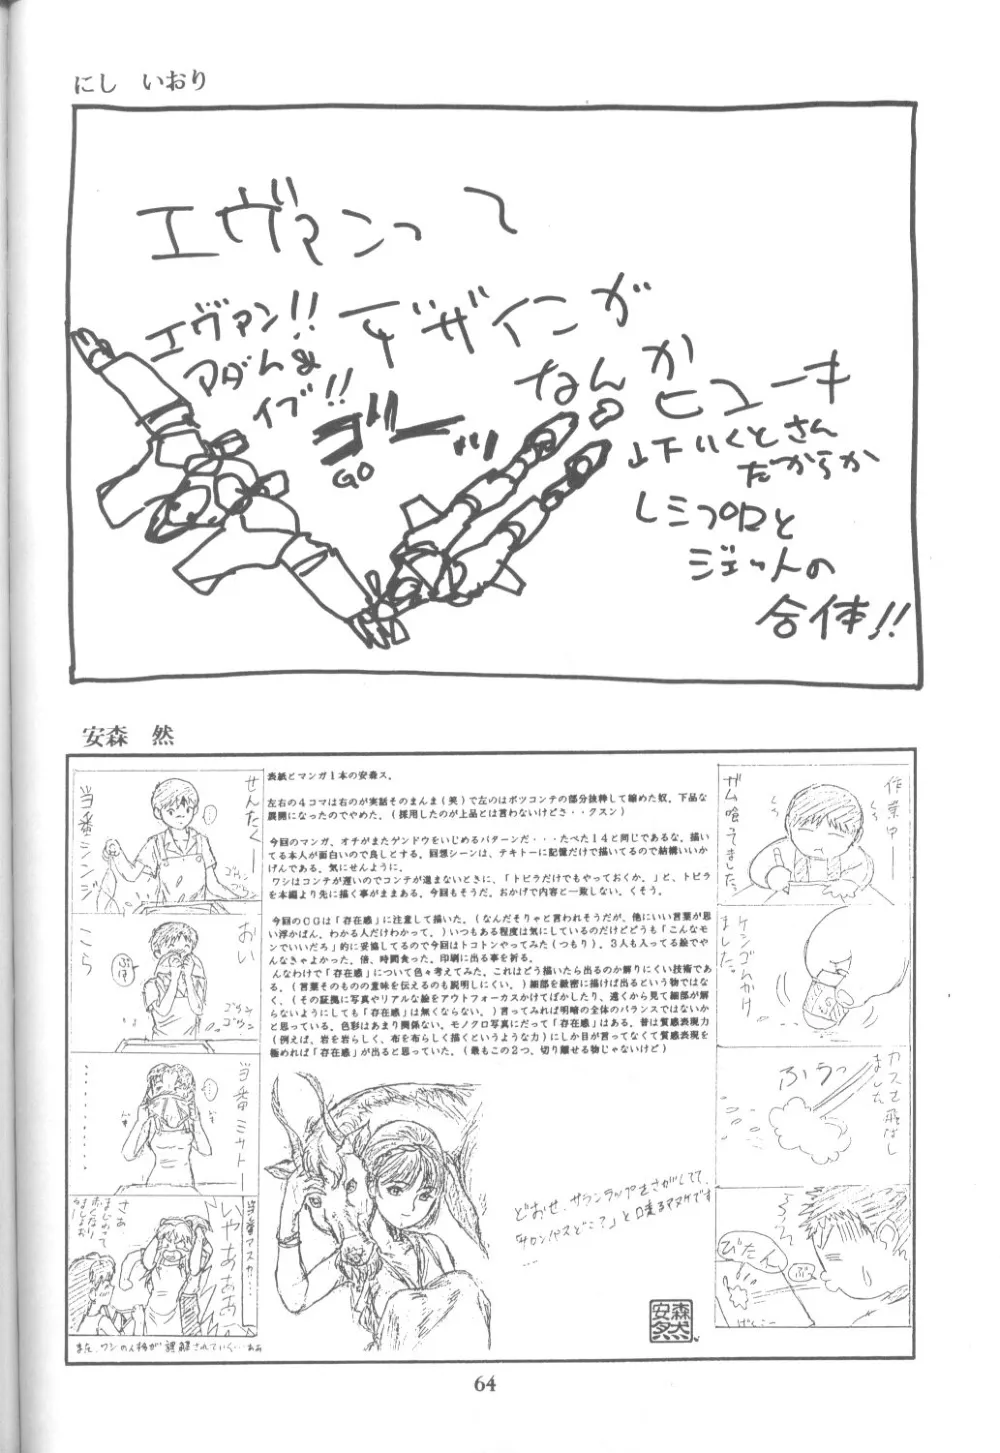 にし　いおり
エヴァンって
デザインが
なんか
ヒューキ
エヴァン!!
アダム&
イブ!!
ゴーッ
GO
山下いくとさん
だからか
レシプロと
ジェットの
合体!!
安森　然
表紙とマンガ1本の安森ス。
左右の4コマは右のが実話そのまんま(笑)で左のはボツコンテの部分抜粋して縮めた奴。下品な
展開になったのでやめた。(採用したのが上品とは言わないけどさ・・クスン)
今回のマンガ、オチがまたゲンドウをいじめるパターンだ・・・たべた14と同じであるな。描い
てる本人が面白いので良しとする。回想シーンは、テキトーに記憶だけで描いてるので結構いいか
げんである。気にせんように。
ワシはコンテが遅いのでコンテが進まないときに、「トビラだけでもやっておくか。」と、トビラ
を本編より先に描く事がままある。今回もそうだ。おかげで内容と一致しない。くそう。
今回のCGは「存在感」に注意して描いた。(なんだそりゃと言われそうだが、他にいい言葉が思
い浮かばん。わかる人だけわかって。)いつもある程度は気にしているのだけどどうも「こんなモ
ンでいいだろ」的に妥協してるので今回はトコトンやってみた(つもり)。3人も入ってる絵でや
んなきゃよかった。倍、時間食った。印刷に出る事を祈る。
んなわけで「存在感」について色々考えてみた。これはどう描いたら出るのか解りにくい技術であ
る。(言葉そのものの意味を伝えるのも説明しにくい。)細部を緻密に描けば出るという物ではな
く、(その証拠に写真やリアルな絵をアウトフォーカスかけてぼかしたり、遠くから見て細部が解
らないようにしても「存在感」は無くならない。)言ってみれば明暗の全体のバランスではないか
と思っている。色彩はあまり関係ない。モノクロ写真にだって「存在感」はある。昔は質感表現力
(例えば、岩を岩らしく、布を布らしく描くというような力)にしか目が言ってなくて質感表現を
極めれば「存在感」が出ると思っていた。(最もこの2つ、切り離せる物じゃないけど)
作業中ー
ガム喰ってました。
ケシゴムかけ
ました。
カスを飛ばし
ました
ふうっ
ぴたん
ぷっ
せんたくー
当番シンジ
ゴウン
ゴウン
おい
こら
ゴウン
ゴウン
当番ミサトー
・・・・・・・・
当番アスカ…
いやああぁ
さあ
また、ワシの人格が誤解されていく…ああ
どおせ、サランラップをさがしてて、
「サロンパスどこ?」と口走るアスカです
…
安森然
64